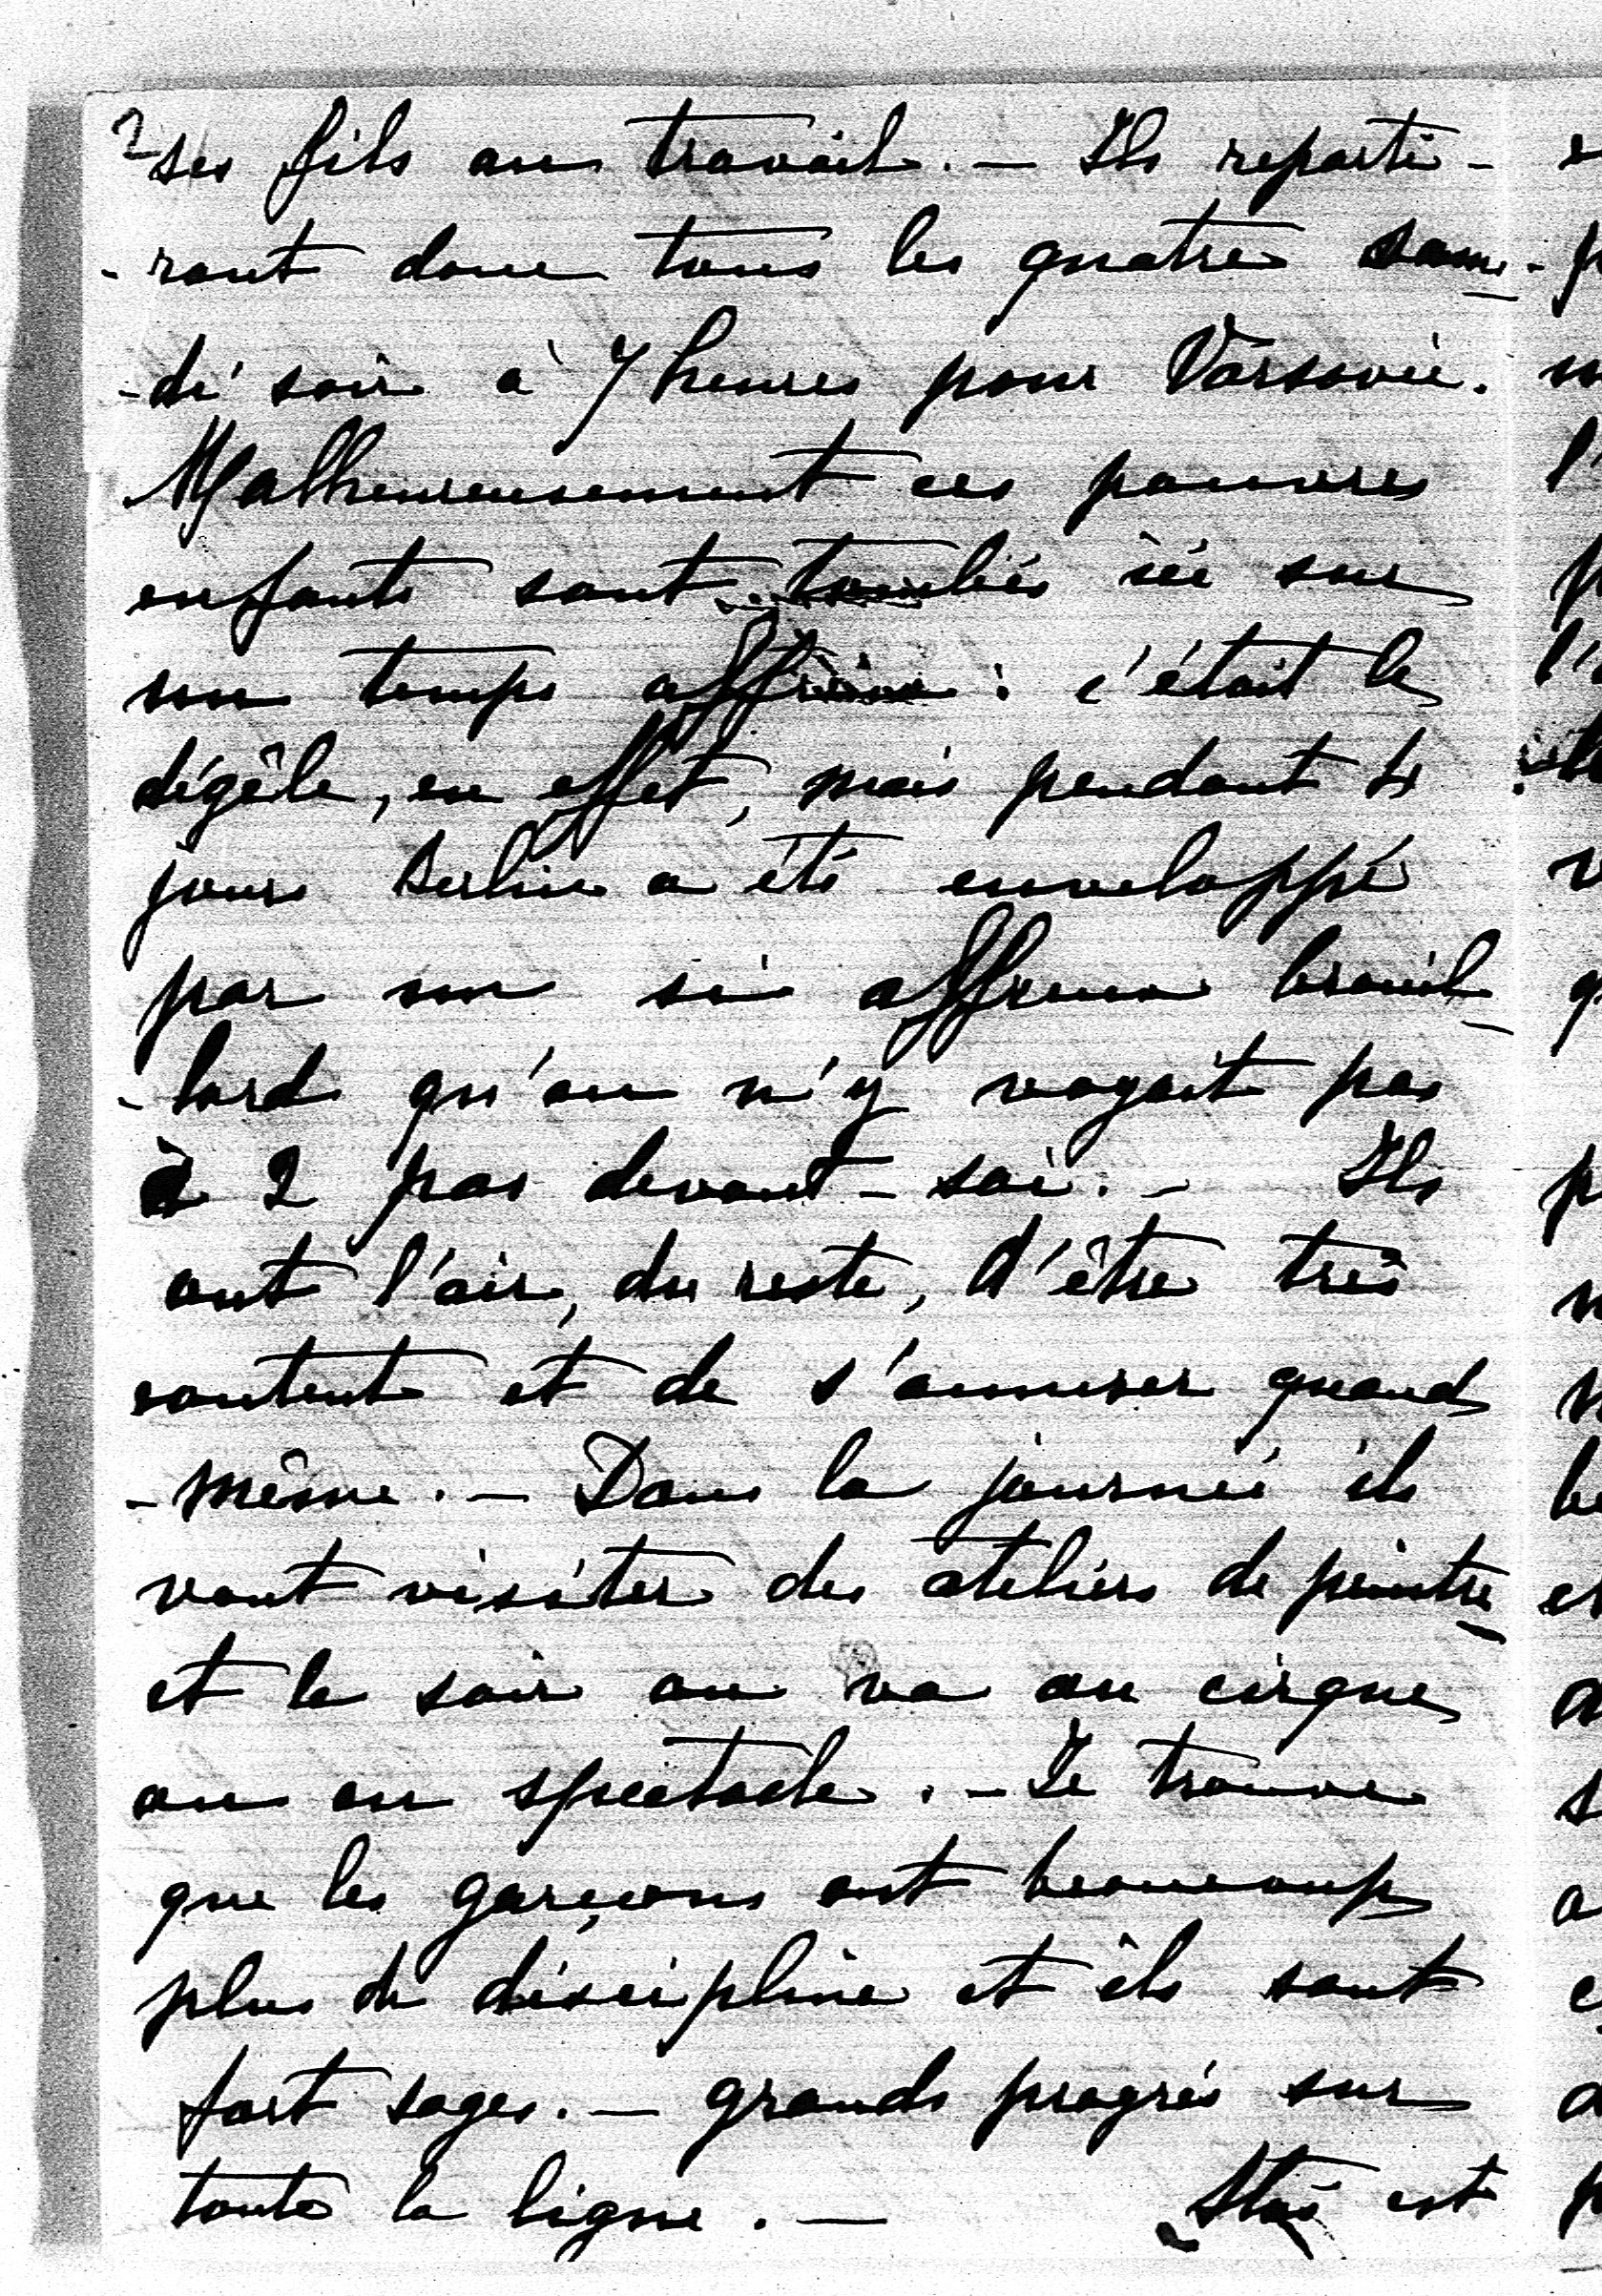 2
ses fils au travail. — Ils reparti-
-ront donc tous les quatre same-
-di soir à 7 heures pour Varsovie.
Malheureusement ces pauvres
enfants sont tombés ici sur
un temps affreux : c'était le
dégêle, en effet, mais pendant 4
jours Berlin a été enveloppé
par un si affreux brouil-
-lard qu'on n'y voyait pas
à 2 pas devant-soi. — Ils
ont l'air, du reste, d'être très
content et de s'amuser quand
-même. — Dans la journée ils
vont visiter des ateliers de peintre
et le soir on va au cirque
ou au spectacle. — Je trouve
que les garçons ont beaucoup
plus de discipline et ils sont
fort sages. — grands progrés sur
toute la ligne. — Stas est